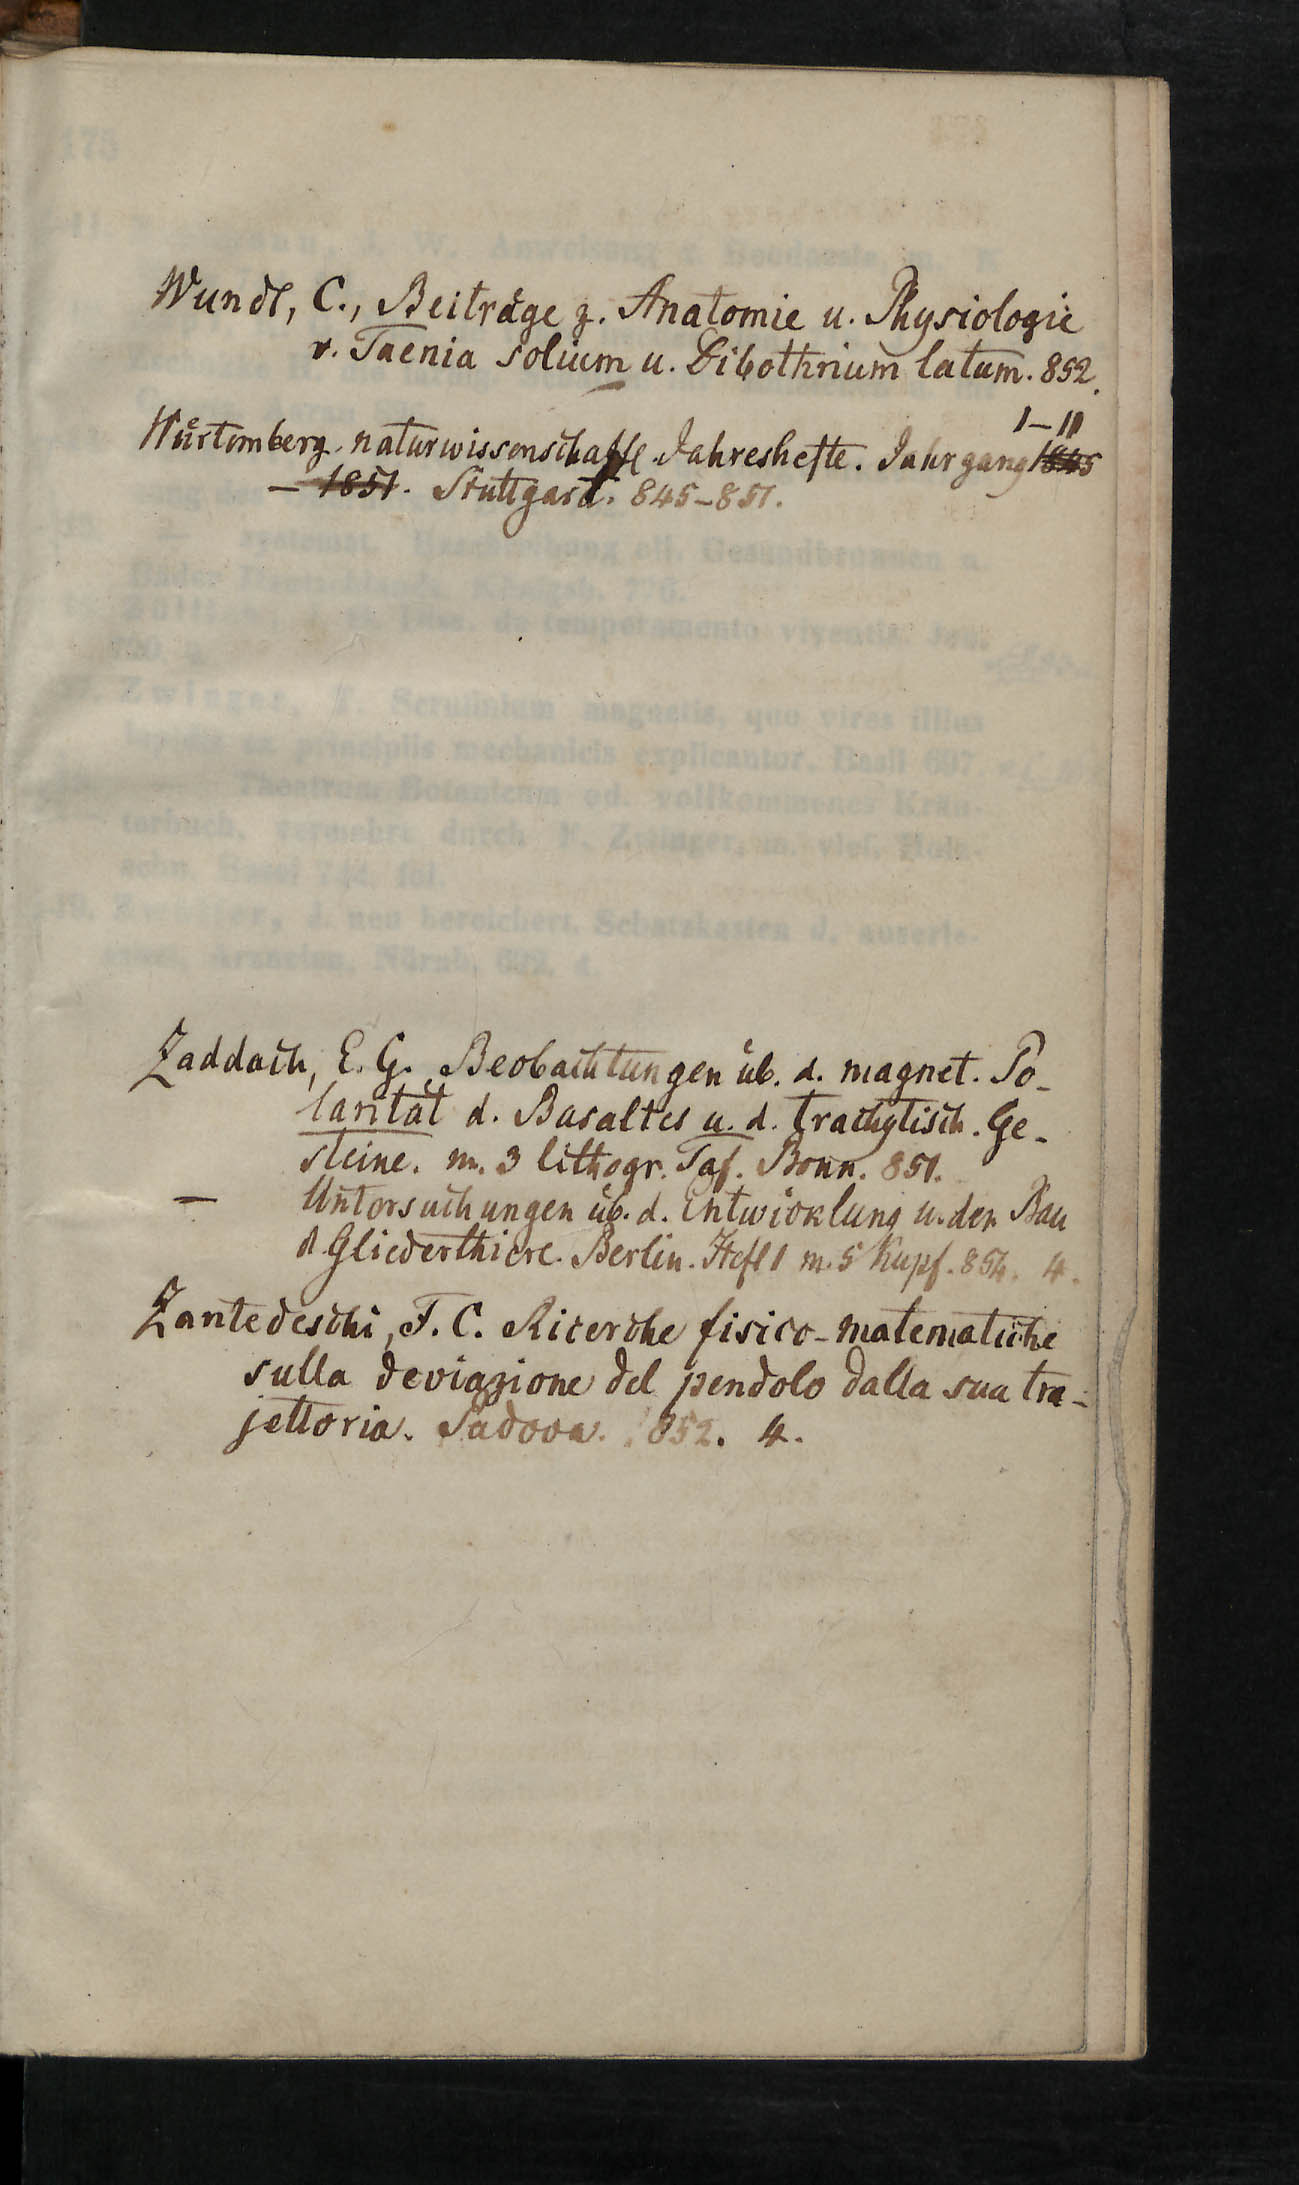 Wundt, C., Beiträge z. Anatomie u. Physiologie
v. Taenia solium u. Bibothrium latum. 852.
I–II
Würtemberg. naturwissenschaftl. Jahreshefte. Jahrgang 1845
– 1851. Stuttgart. 845–851.
Zaddach, E. G. Beobachtungen üb. d. magnet. Po-
larität d. Basaltes u. d. trachytisch. Ge-
steine. m. 3 lithogr. Taf. Bonn. 851.
— Untersuchungen üb. d. Entwicklung u. den Bau
d. Gliederthiere. Berlin. Heft 1 m. 5 Kupf. 854. 4.
Zantedeschi, F. C. Ricerche fisico-matematiche
sulla deviazione del pendolo dalla sua tra-
jettoria. Padova. 852. 4.